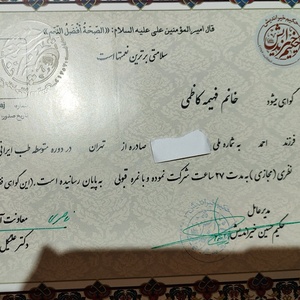 قال امیرالمؤمنین علی علیه السلام: «الصحّة أفضل النِعم»
سلامتی برترین نعمتهاست
گواهی میشود
خانم فهیمه کاظمی
فرزند احمد به شماره ملی صادره از تهران در دوره متوسط طب ایرانی
نظری (مجازی) به مدت ۲۷ ساعت شرکت نموده و با نمره قبولی به پایان رسانیده است. (این گواهی
مدیرعامل
معاونت
حکیم حسین خیراندیش
دکتر